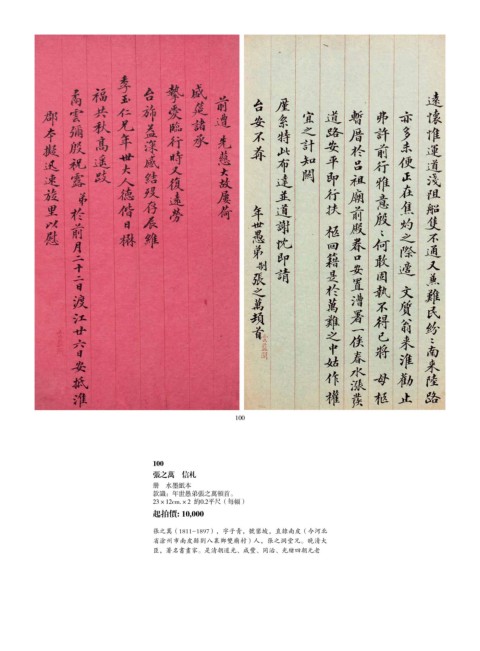 前遭 先慈大故屢荷
威筵諸承
摯愛臨行時又復遠勞
台旆益深感結歿存展維
季玉仁兄年世大人德偕日楙
福共秋高遙跂
喬雲彌殷祝露 弟於前月二十二日渡江廿六日安抵淮
郡本擬迅速旋里以慰
遠懷惟運道淺阻船隻不通又兼難民紛〻南來陸路
亦多未便正在焦灼之際適 文質翁來淮勸止
弗許前行雅意殷〻何敢固執不得已將 母柩
暫厝於呂祖廟前殿眷口安置漕署一俟春水漲發
道路安平即行扶 柩回籍是於萬難之中姑作權
宜之計知關
廑系特此布達並道謝忱即請
台安不莊 年世愚弟制張之萬頓首
100
100
張之萬 信札
册 水墨紙本
款識：年世愚弟張之萬頓首。
23×12cm.×2 約0.2平尺（每幅）
起拍價: 10,000
張之萬（1811-1897），字子青，號鑾坡，直隸南皮（今河北
省滄州市南皮縣劉八裏鄉雙廟村）人，張之洞堂兄。晚清大
臣，著名書畫家。是清朝道光、咸豐、同治、光緒四朝元老